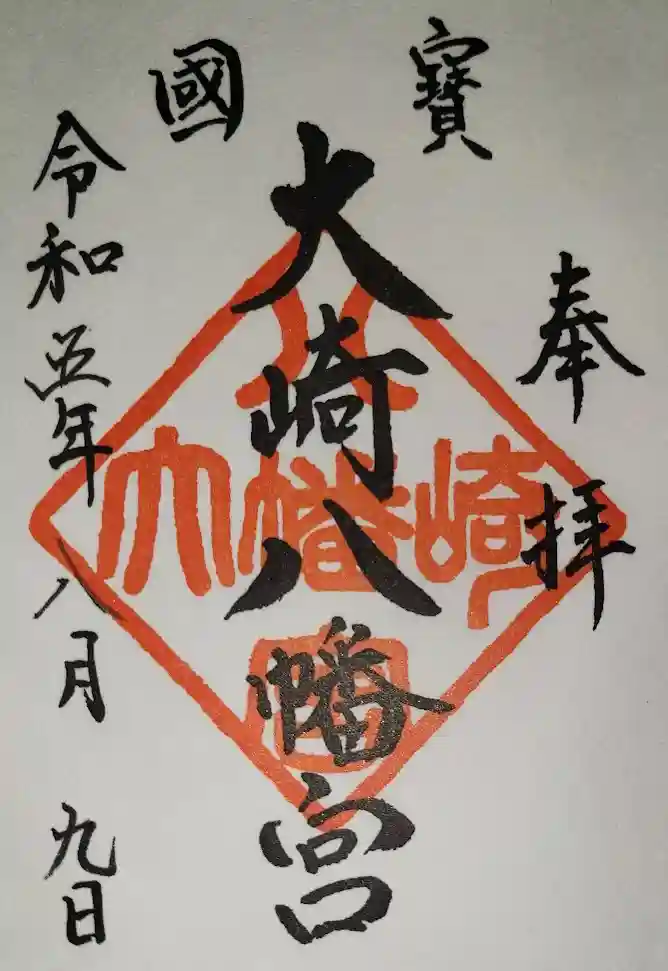 奉拝
寶國
大崎八幡宮
令和五年八月九日
大崎八幡宮